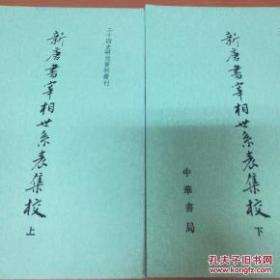 二十四史研究資料叢刊
新唐書宰相世系表集校
上
新唐書宰相世系表集校
下
中華書局